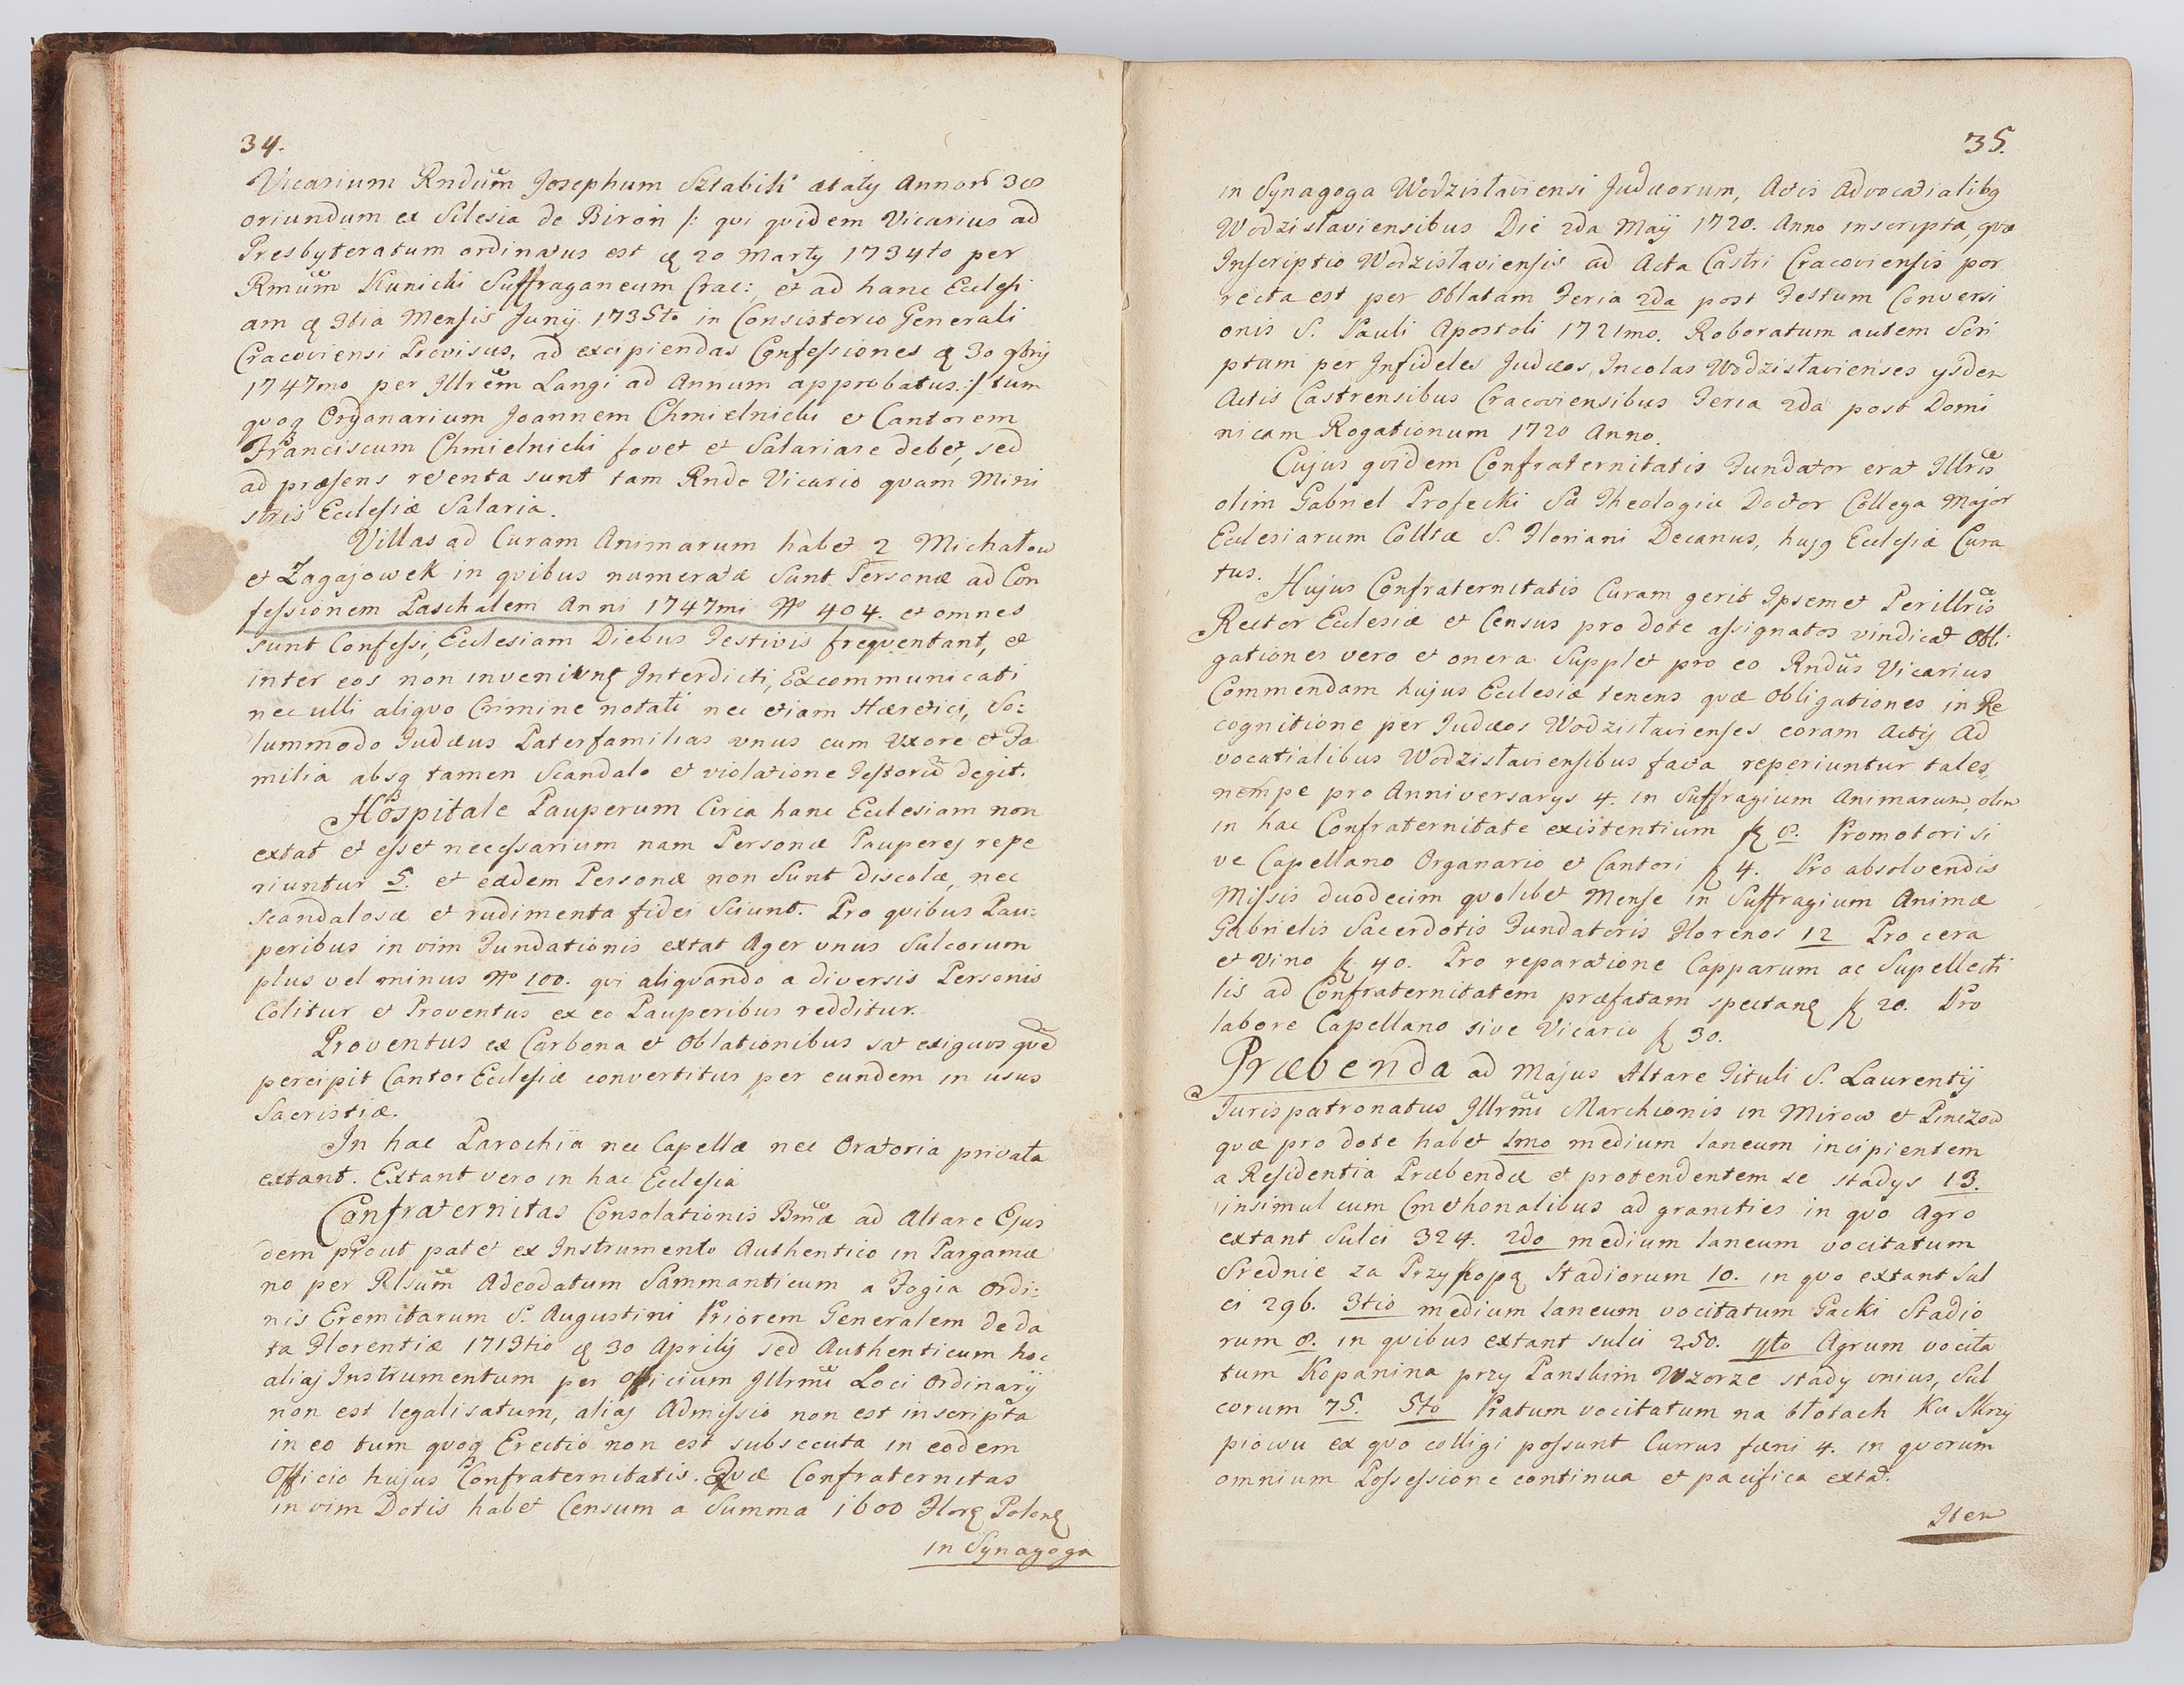 34.
Vicarium Rndum Josephum Sztabik ætatis Annor 38
oriundum ex Silesia de Biron /: qvi qvidem Vicarius ad
Presbyteratum ordinatus est 20 Martÿ 1734to per
Rmum Kunicki Suffraganeum Crac: et ad hanc Eccleſi
am 3tia Menſis Junÿ 1735to in Consistorio Generali
Cracoviensi Provisus, ad excipiendas Confeſsiones 30 9bris
1747mo per Illrem Langi ad Annum approbatus :/ tum
qvoq Organarium Joannem Chmielnicki et Cantorem
Franciscum Chmielnicki fovet et Salariare debet, sed
ad præsens retenta sunt tam Rndo Vicario qvam Mini
stris Eccleſiæ Salaria.
Villas ad Curam Animarum habet 2 Michałow
et Zagajowek in qvibus numeratæ Sunt Personæ ad Con
feſsionem Paschalem Anni 1747mi No 404. et omnes
sunt Confeſsi, Ecclesiam Diebus Festivis freqventant, et
inter eos non inveniunt Interdicti, Excommunicati
nec ulli aliqvo Crimine notati nec etiam Hæretici, So:
lummodo Judæus Paterfamilias vnus cum Vxore et Fa
milia absq tamen Scandalo et violatione Festorũ degit.
Hospitale Pauperum Circa hanc Ecclesiam non
extat et eſset neceſsarium nam Personæ Pauperes repe
riuntur 5. et eædem Personæ non Sunt discolæ, nec
scandalosæ et rudimenta fidei Sciunt. Pro qvibus Pau:
peribus in vim Fundationis extat Ager vnus Sulcorum
plus vel minus No 100. qvi aliqvando a diversis Personis
Colitur et Proventus ex eo Pauperibus redditur.
Proventus ex Carbona et Oblationibus sat exiguos qvos
percipit Cantor Eccleſiæ convertitur per eundem in usus
Sacristiæ.
In hac Parochia nec Capellæ nec Oratoria privata
extant. Extant vero in hac Eccleſia
Confraternitas Consolationis Bmæ ad Altare Ejus
dem prout patet ex Instrumento Authentico in Pargamæ
no per Rlsum Adeodatum Sammanticum a Fogia Ordi:
nis Eremitarum S. Augustini Priorem Generalem de da
ta Florentiæ 1713tio 30 Aprilis sed Authenticum hoc
alias Instrumentum per Officium Illrmi Loci Ordinarÿ
non est legalisatum, alias Admiſsio non est inscripta
in eo tum qvoq Erectio non est subsecuta in eodem
Officio hujus Confraternitatis. Qvæ Confraternitas
in vim Dotis habet Censum a Summa 1600 Flor Polon
in Synagoga
35.
in Synagoga Wodzislaviensi Judæorum, Actis Advocatialibq
Wodzislaviensibus Die 2da Maÿ 1720. Anno inscripta, qvæ
Inſcriptio Wodzislaviensis ad Acta Castri Cracoviensis por
recta est per Oblatam Feria 2da post Festum Conversi
onis S. Pauli Apostoli 1721mo. Roboratum autem Scri
ptum per Infideles Judæos Incolas Wodzislavienses ysdem
Actis Castrensibus Cracoviensibus Feria 2da post Domi
nicam Rogationum 1720 Anno.
Cujus qvidem Confraternitatis Fundator erat Illris
olim Gabriel Profecki Sæ Theologiæ Doctor Collega Major
Ecclesiarum Colltæ S. Floriani Decanus, hujq Eccleſiæ Cura
tus.
Hujus Confraternitatis Curam gerit Ipsemet Perillris
Rector Ecclesiæ et Census pro dote aſsignatos vindicat Obli
gationes vero et onera Supplet pro eo Rndus Vicarius
Commendam hujus Ecclesiæ tenens qvæ Obligationes in Re
cognitione per Judæos Wodzislavienses coram Actis Ad
vocatialibus Wodzislaviensibus facta reperiuntur tales,
nempe pro Anniversarys 4. in Suffragium Animarum, olim
in hac Confraternitate existentium f 8. Promotori si
ve Capellano Organario et Cantori f 4. Pro absolvendis
Miſsis duodecim qvolibet Mense in Suffragium Animæ
Gabrielis Sacerdotis Fundatoris Florenos 12 Pro cera
et vino f 40. Pro reparatione Capparum ac Supellecti
lis ad Confraternitatem præfatam spectan f 20. Pro
labore Capellano sive Vicario f 30.
Præbenda ad Majus Altare Tituli S. Laurentÿ
Jurispatronatus Illrmi Marchionis in Mirow et Pinczow
qvæ pro dote habet 1mo medium laneum incipientem
a Reſidentia Præbendæ et protendentem se stadys 13.
insimul cum Cmethonalibus ad granities in qvo Agro
extant Sulci 324. 2do medium laneum vocitatum
Srednie za Przykopą Stadiorum 10. in qvo extant Sul
ci 296. 3tio medium laneum vocitatum Gacki Stadio
rum 8. in qvibus extant sulci 250. 4to Agrum vocita
tum Kopanina przy Panskim Wzorze stady vnius, Sul
corum 75. 5to Pratum vocitatum na błotach Ku Skrzy
piowu ex qvo colligi poſsunt Currus fœni 4. in qvorum
omnium Poſseſsione continua et pacifica extat.
Item